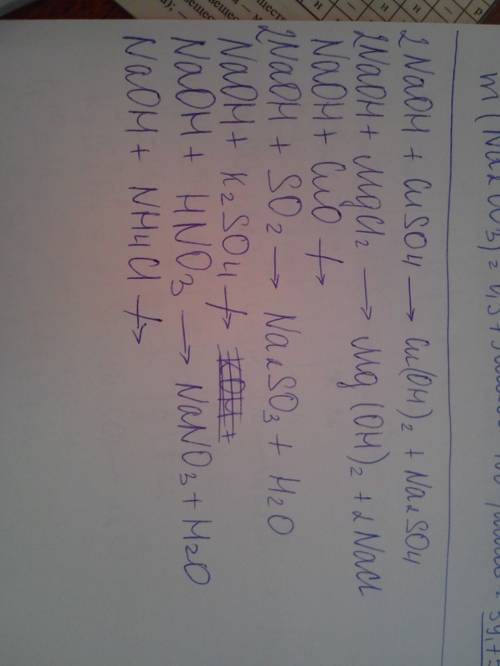 m(Na2CO3) =
2NaOH + CuSO4 → Cu(OH)2 + Na2SO4
2NaOH + MgCl2 → Mg(OH)2 + 2NaCl
NaOH + CuO ↛
2NaOH + SO2 → Na2SO3 + H2O
NaOH + K2SO4 ↛
NaOH + HNO3 → NaNO3 + H2O
NaOH + NH4Cl ↛